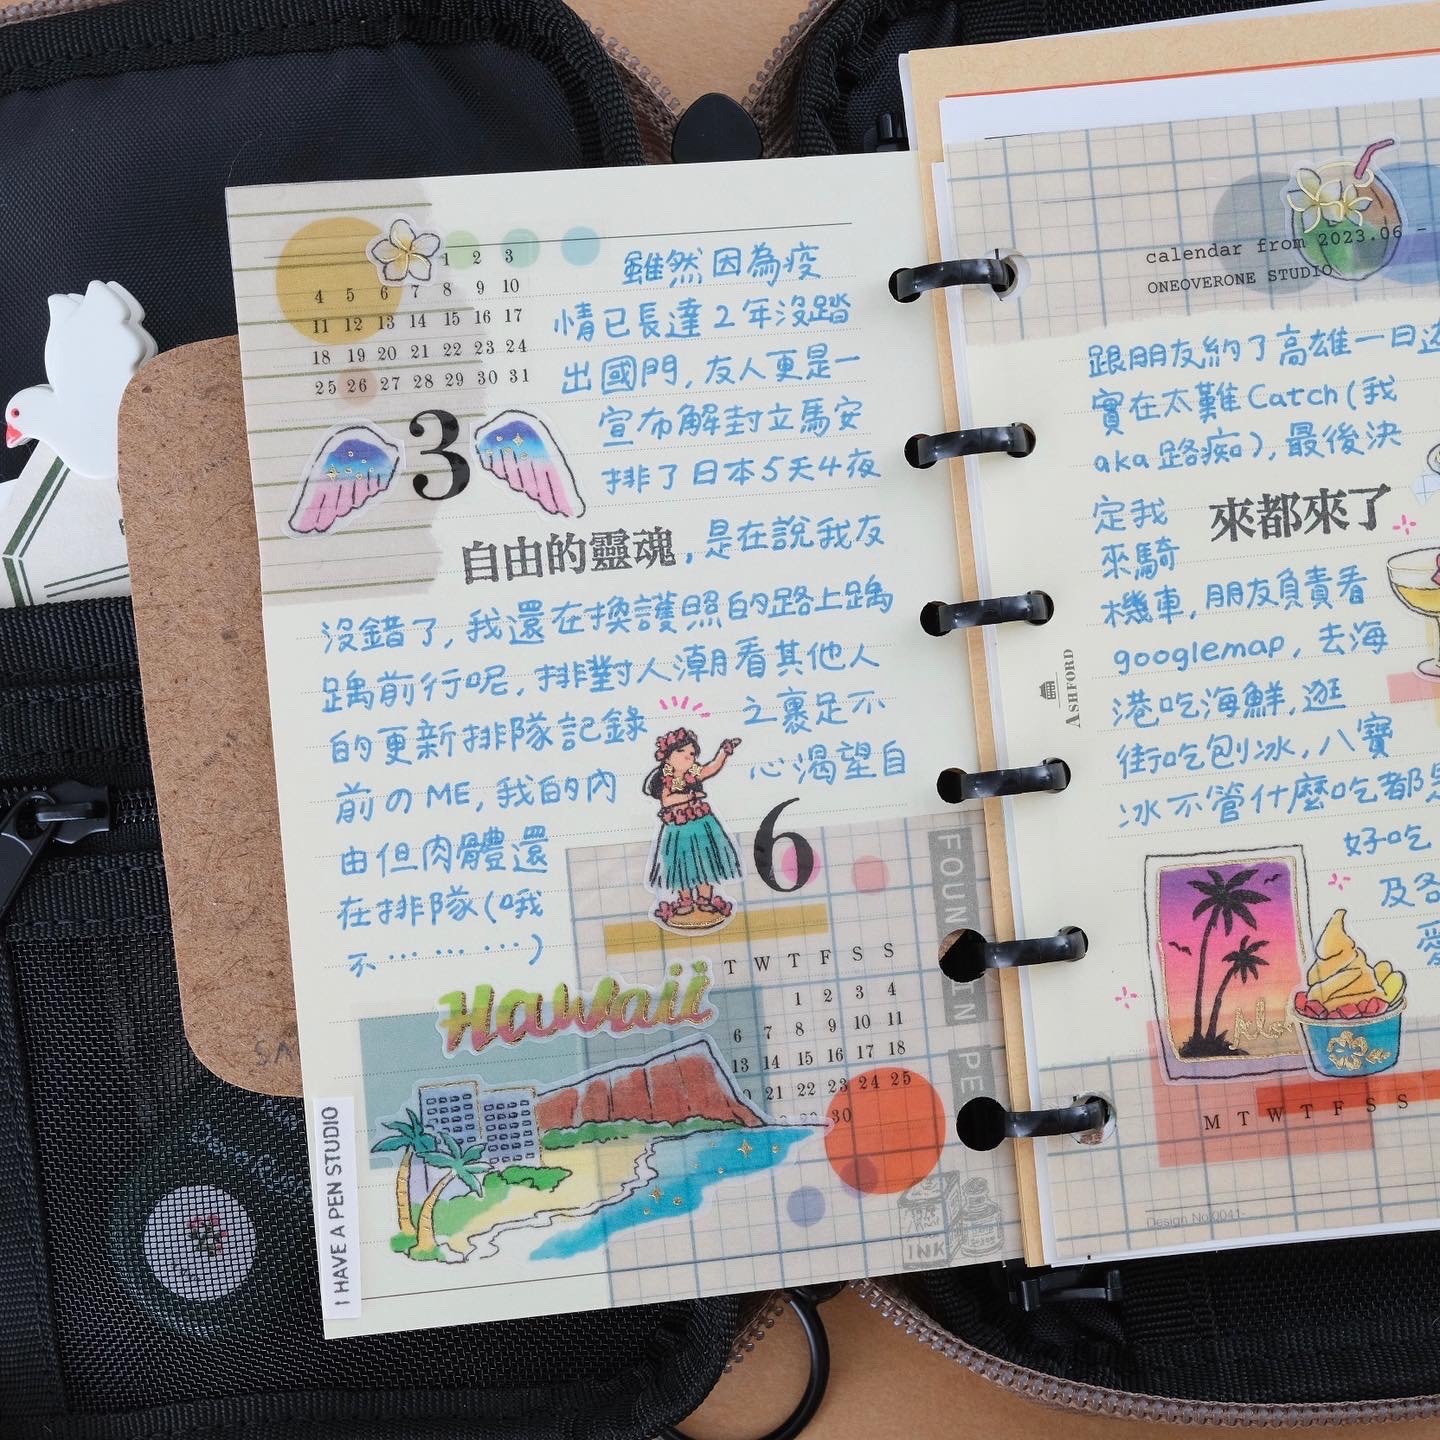 1 2 3
4 5 6 7 8 9 10
11 12 13 14 15 16 17
18 19 20 21 22 23 24
25 26 27 28 29 30 31
3
雖然因為疫
情已長達2年沒踏
出國門,友人更是一
宣布解封立馬安
排了日本5天4夜
自由的靈魂,是在說我友
沒錯了,我還在換護照的路上踽
踽前行呢,排對人潮看其他人
的更新排隊記錄 之裹足不
前のME,我的內 心渴望自
由但肉體還
在排隊(哦
不………)
6
Hawaii
T W T F S S
1 2 3 4
6 7 8 9 10 11
13 14 15 16 17 18
20 21 22 23 24 25
29 30
FOUNTAIN PE
INK
I HAVE A PEN STUDIO
calendar from 2023.06 -
ONEOVERONE STUDIO
跟朋友約了高雄一日
實在太難Catch(我
aka路痴),最後決
定我 來都來了
來騎
機車,朋友負責看
googlemap,去海
港吃海鮮,逛
街吃刨冰,八寶
冰不管什麼吃都
好吃
及各
愛
ASHFORD
Alo
M T W T F S S
Design No.0041-